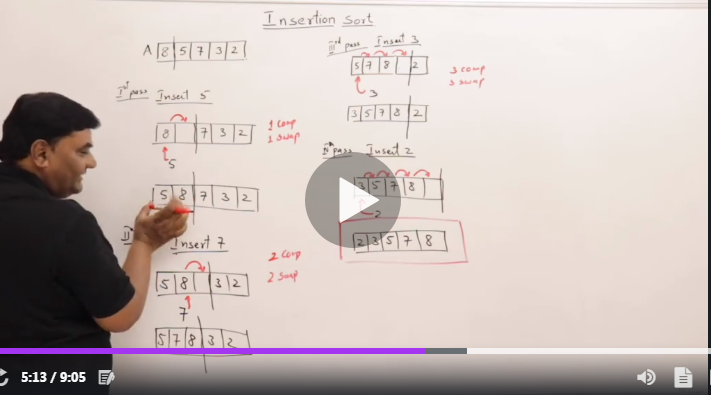 Insertion Sort
A 8 5 7 3 2
Ist pass Insert 5
8 7 3 2
5
1 Comp
1 swap
5 8 7 3 2
II Insert 7
5 8 3 2
7
2 Comp
2 swap
5 7 8 3 2
IIIrd pass Insert 3
5 7 8 2
3
3 comp
3 swap
3 5 7 8 2
pass Insert 2
3 5 7 8
2
2 3 5 7 8
5:13 / 9:05